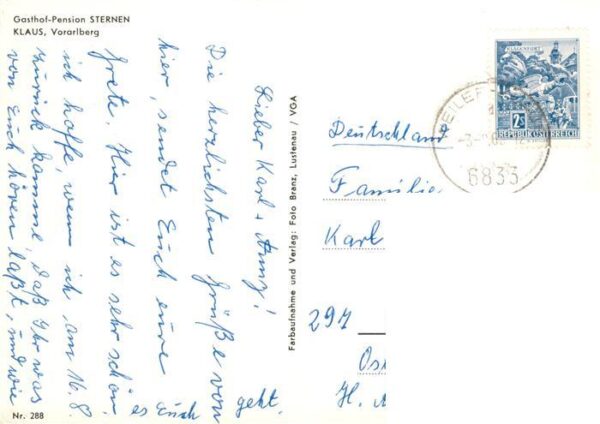 Gasthof-Pension STERNEN
KLAUS, Vorarlberg
Lieber Karl + Anny!
Die herzlichsten Grüße von
hier, sendet Euch eure
Grete. Hier ist es sehr schön.
ich hoffe, wenn ich, am 16.8.
zurück komme, daß Ihr was
von Euch hören laßt, und wie
es Euch geht.
Nr. 288
Farbaufnahme und Verlag: Foto Branz, Lustenau / VGA
KLAGENFURT
2S
REPUBLIK ÖSTERREICH
6833
Deutschland
Familie
Karl
291
H.